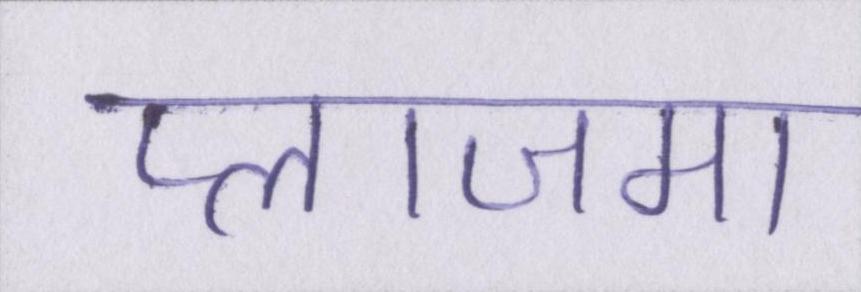 प्लाजमा